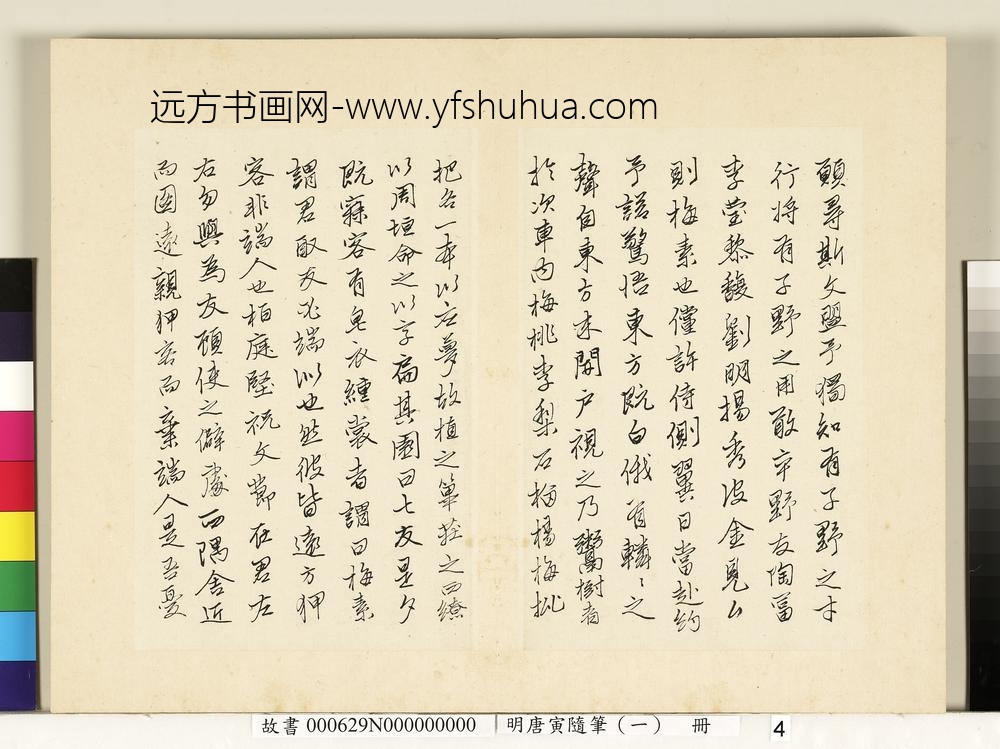 远方书画网-www.yfshuhua.com
願尋斯文盟予獨知有子野之才
行將有子野之用敢率野友陶冨
李瑩黎馥劉明揚秀皮金見公
則梅素也僅許侍側翼日當赴約
予諾驚悟東方既白俄有轔〻之
聲自東方来開戶視之乃鬻樹者
於次車内梅桃李梨石榴楊梅批
把各一本以应夢故植之篳荘之西繚
以周垣命之以字扁其園曰七友是夕
既寐客有皂衣纁裳者謂曰梅素
謂君取友必端以也然彼皆遠方狎
客非端人也柏庭堅祝文節在君左
右勿與為友顧使之僻處西隅舍近
而圖遠親狎客而棄端人是吾憂
故書 000629N000000000 明唐寅隨筆（一） 冊 4